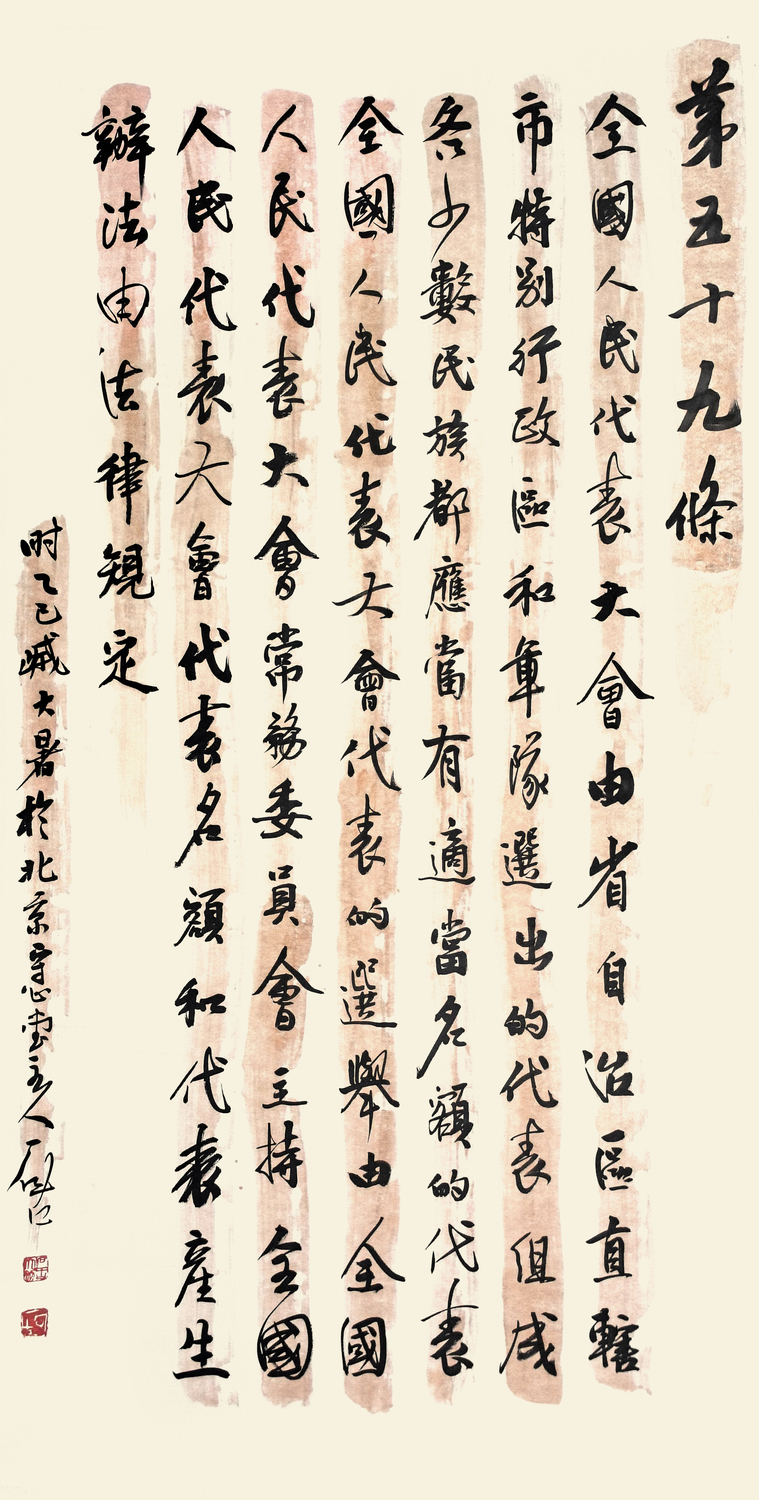 第五十九條
全國人民代表大會由省自治區直轄
市特别行政區和軍隊選出的代表组成
各少數民族都應當有適當名額的代表
全國人民代表大會代表的選舉由全國
人民代表大會常務委員會主持全國
人民代表大會代表名額和代表產生
辦法由法律規定
时乙巳歲大暑於北京守心堂主人